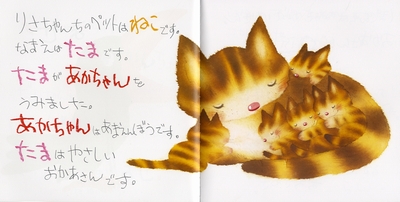 りさちゃんちのペットはねこです。
なまえはたまです。
たまがあかちゃんを
うみました。
あかちゃんはあまえんぼうです。
たまはやさしい
おかあさんです。